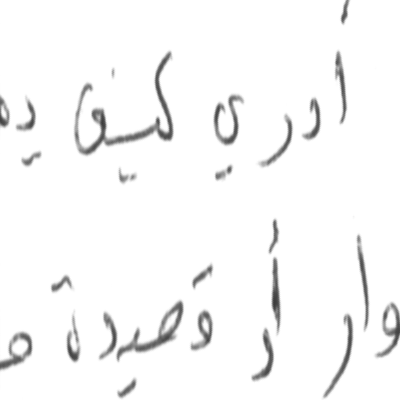 أدري كيف يـ
وار أو قصيدة